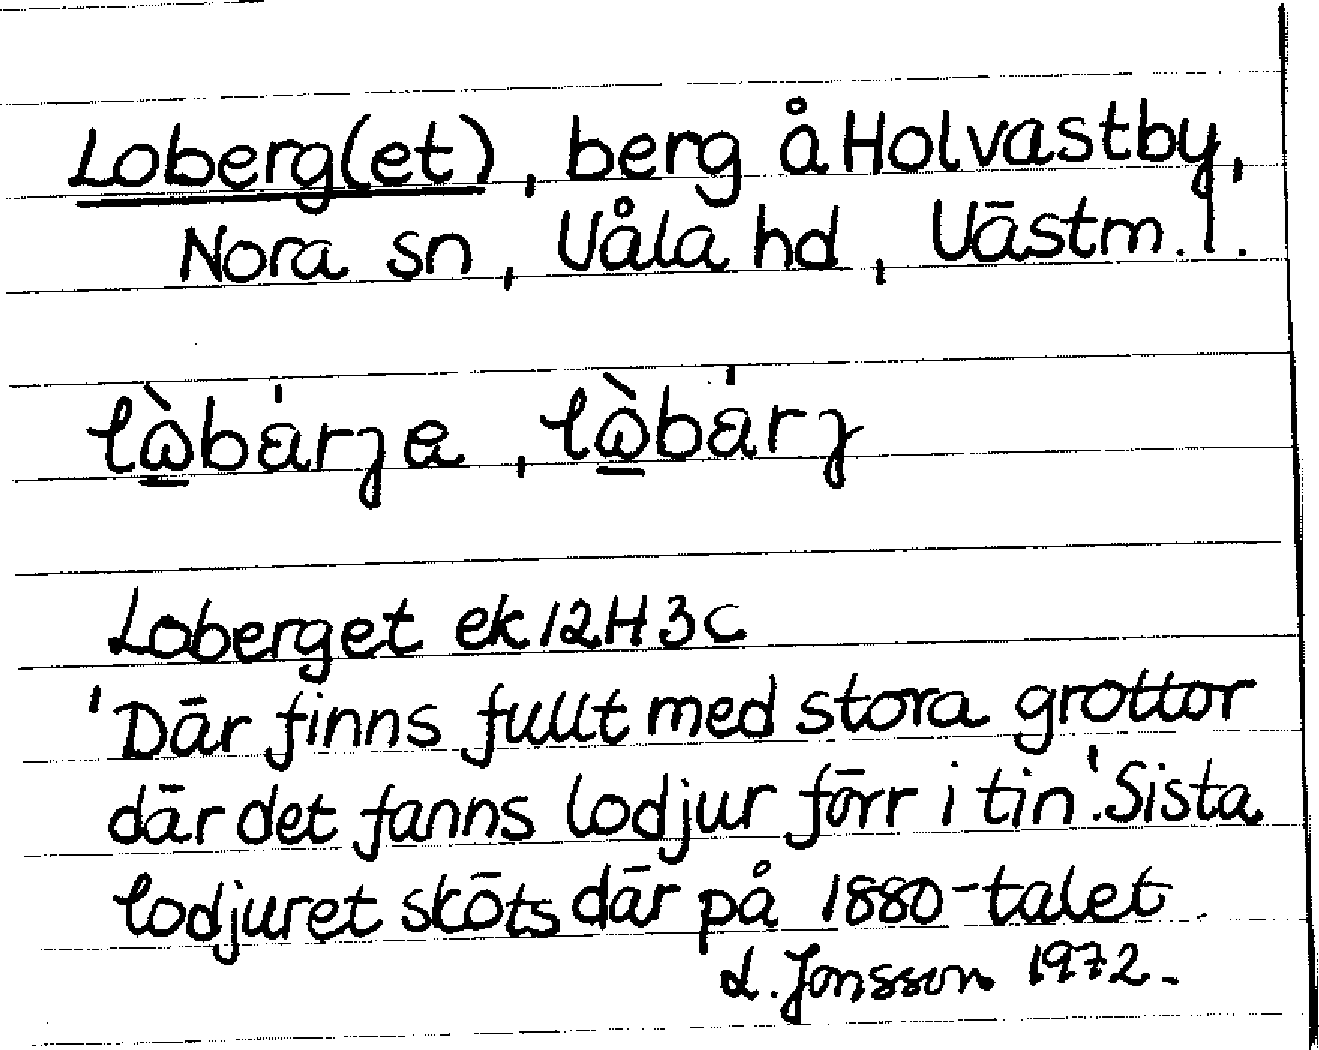 Loberg(et), berg å Holvastby,
Nora sn, Våla hd, Västm. l.
lὼbα̍rȝe, lὼbα̍rȝ
Loberget ek 12H 3c
'Där finns fullt med stora grottor
där det fanns lodjur förr i tin'. Sista
lodjuret sköts där på 1880-talet
L. Jonsson 1972.